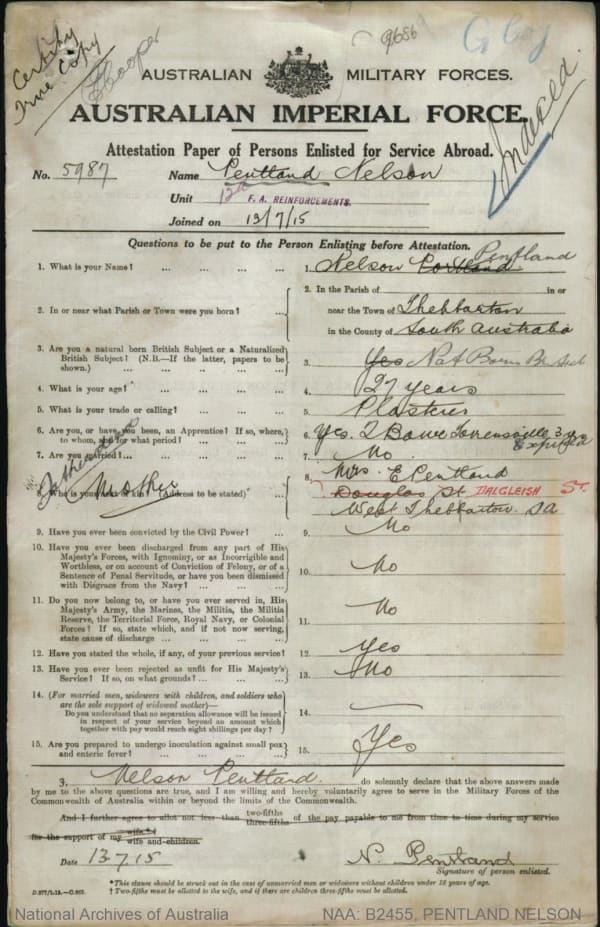 Certify
True Copy
Hooper
9686
AUSTRALIAN MILITARY FORCES.
AUSTRALIAN IMPERIAL FORCE.
Indexed.
Attestation Paper of Persons Enlisted for Service Abroad.
No. 5987 Name Pentland Nelson
Unit F. A. REINFORCEMENTS.
Joined on 13/7/15
Questions to be put to the Person Enlisting before Attestation.
1. What is your Name? ... ... ... ... 1. Nelson Portland Pentland
2. In or near what Parish or Town were you born? ... 2. In the Parish of in or
near the Town of Thebbarton
in the County of South Australia
3. Are you a natural born British Subject or a Naturalized
British Subject? (N.B.—If the latter, papers to be
shown.) ... ... ... ... 3. Yes Nat Born Br Sub
4. What is your age? ... ... ... ... 4. 27 years
5. What is your trade or calling? ... ... ... 5. Plasterer
6. Are you, or have you been, an Apprentice? If so, where,
to whom, and for what period? ... ... ... 6. Yes. Torrensville 3 yrs
expired
7. Are you married? ... ... ... 7. No.
Father dead
8. Who is your next of kin? (Address to be stated) ... Mother 8. Mrs. E Pentland
Douglas St DALGLEISH ST.
West Thebbarton. SA
9. Have you ever been convicted by the Civil Power? ... 9. No
10. Have you ever been discharged from any part of His
Majesty's Forces, with Ignominy, or as Incorrigible and
Worthless, or on account of Conviction of Felony, or of a
Sentence of Penal Servitude, or have you been dismissed
with Disgrace from the Navy? ... ... ... 10. No
11. Do you now belong to, or have you ever served in, His
Majesty's Army, the Marines, the Militia, the Militia
Reserve, the Territorial Force, Royal Navy, or Colonial
Forces? If so, state which, and if not now serving,
state cause of discharge ... ... ... 11. No
12. Have you stated the whole, if any, of your previous service? 12. Yes
13. Have you ever been rejected as unfit for His Majesty's
Service? If so, on what grounds? ... ... ... 13. No
14. (For married men, widowers with children, and soldiers who
are the sole support of widowed mother)—
Do you understand that no separation allowance will be issued
in respect of your service beyond an amount which
together with pay would reach eight shillings per day? 14. —
15. Are you prepared to undergo inoculation against small pox
and enteric fever? ... ... ... ... 15. Yes
I, Nelson Pentland. do solemnly declare that the above answers made
by me to the above questions are true, and I am willing and hereby voluntarily agree to serve in the Military Forces of the
Commonwealth of Australia within or beyond the limits of the Commonwealth.
And I further agree to allot not less than two-fifths three-fifths of the pay payable to me from time to time during my service
for the support of my wife* wife and children.
Date 13.7.15 N. Pentland
Signature of person enlisted.
*This clause should be struck out in the case of unmarried men or widowers without children under 18 years of age.
† Two-fifths must be allotted to the wife, and if there are children three-fifths must be allotted.
National Archives of Australia NAA: B2455, PENTLAND NELSON